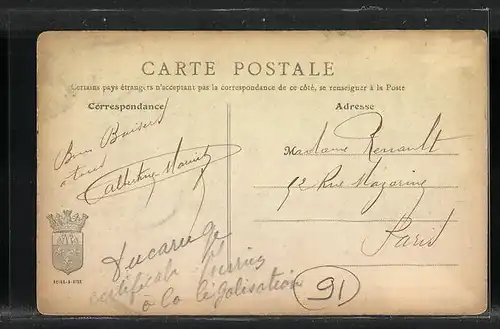 CARTE POSTALE
Certains pays étrangers n'acceptant pas la correspondance de ce côté, se renseigner à la Poste
Correspondance
Adresse
Bons Baisers
a tous
Madame Renault
52 Rue Mazarine
Paris
certificat
a la légalisation
91